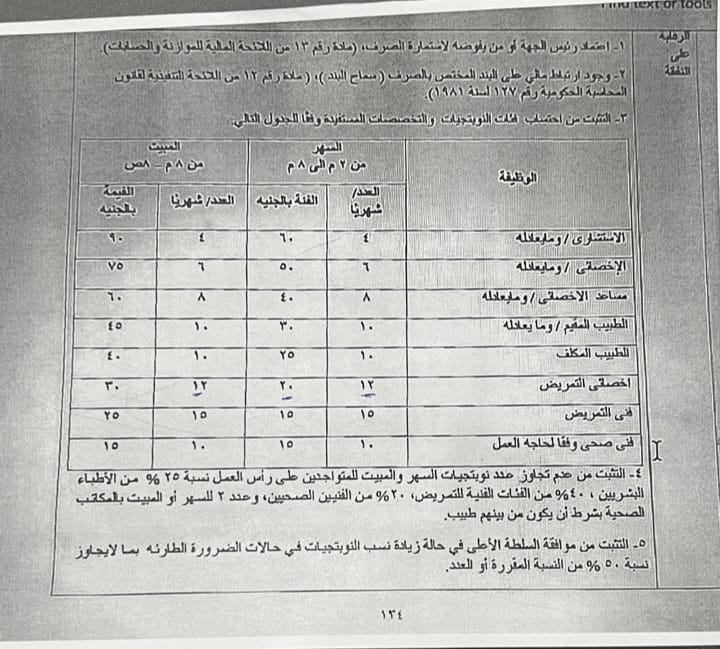 Find text or tools
الرقابة
على
النفقة
١- اعتماد رئيس الجهة أو من يفوضه لاستمارة الصرف، (مادة رقم ١٣ من اللائحة المالية للموازنة والحسابات).
٢- وجود ارتباط مالي على البند المختص بالصرف (سماح البند)، (مادة رقم ١٢ من اللائحة التنفيذية لقانون
المحاسبة الحكومية رقم ١٢٧ لسنة ١٩٨١).
٣- التثبت من احتساب فئات النوبتجيات والتخصصات المستفيدة وفقًا للجدول التالي:
الوظيفة | السهر | المبيت
من ٢ م الى ٨ م | من ٨ م – ٨ص
العدد/ شهريًا | الفئة بالجنيه | العدد/ شهريًا | القيمة بالجنيه
الاستشارى / ومايعادله | ٤ | ٦٠ | ٤ | ٩٠
الإخصائى / ومايعادله | ٦ | ٥٠ | ٦ | ٧٥
مساعد الاخصائى / ومايعادله | ٨ | ٤٠ | ٨ | ٦٠
الطبيب المقيم / وما يعادله | ١٠ | ٣٠ | ١٠ | ٤٥
الطبيب المكلف | ١٠ | ٢٥ | ١٠ | ٤٠
اخصائى التمريض | ١٢ | ٢٠ | ١٢ | ٣٠
فنى التمريض | ١٥ | ١٥ | ١٥ | ٢٥
فنى صحى وفقًا لحاجه العمل | ١٠ | ١٥ | ١٠ | ١٥
٤- التثبت من عدم تجاوز عدد نوبتجيات السهر والمبيت للمتواجدين على رأس العمل نسبة ٢٥ % من الأطباء
البشريين ، ٤٠% من الفئات الفنية للتمريض، ٢٠% من الفنيين الصحيين، وعدد ٢ للسهر أو المبيت بالمكاتب
الصحية بشرط أن يكون من بينهم طبيب.
٥- التثبت من موافقة السلطة الأعلى في حالة زيادة نسب النوبتجيات في حالات الضرورة الطارئه بما لايجاوز
نسبة ٥٠ % من النسبة المقررة أو العدد.
١٣٤